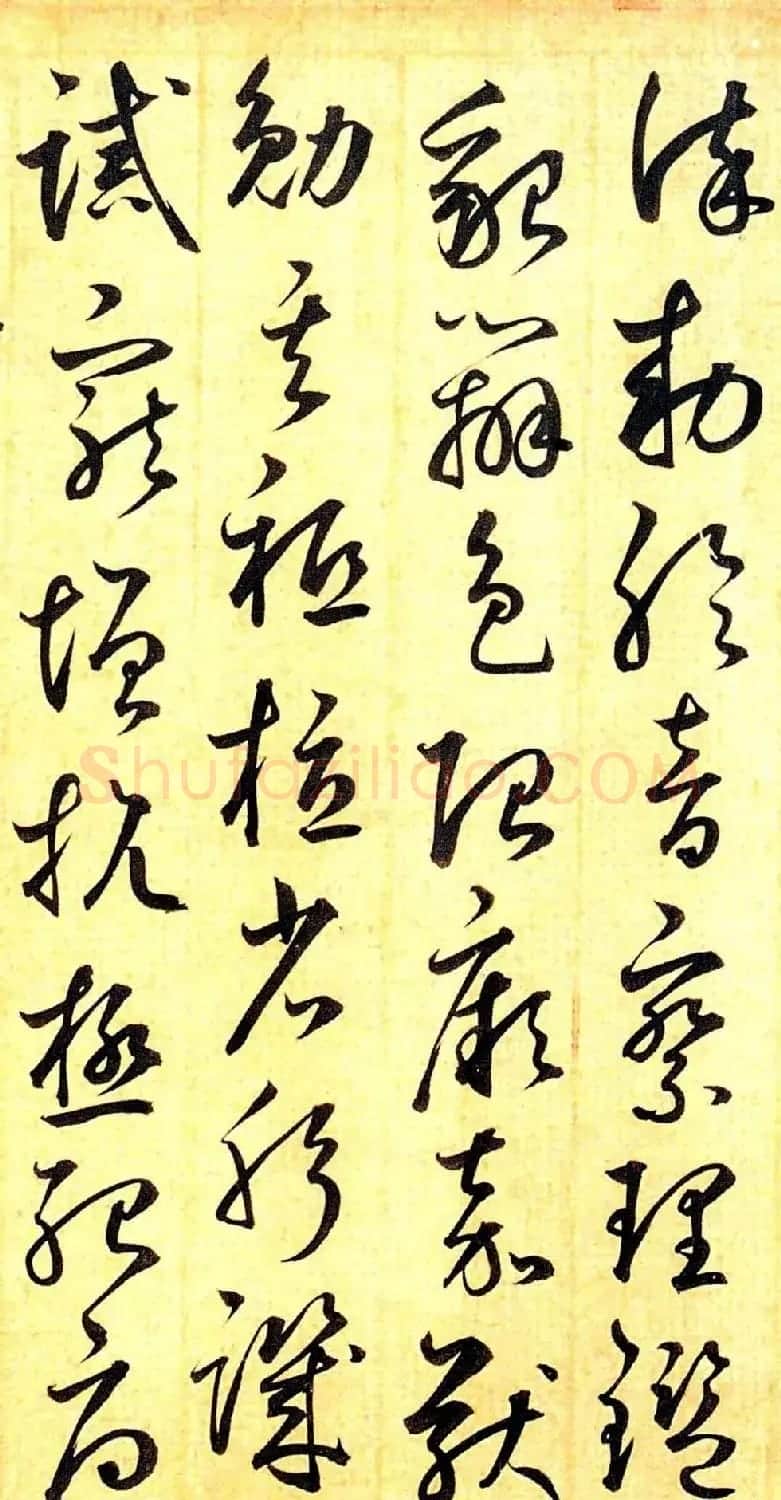 謹勅聆音察理鑑
貌辨色貽厥嘉猷
勉其祗植省躬譏
誡寵增抗極殆辱
Shufaziliao.COM